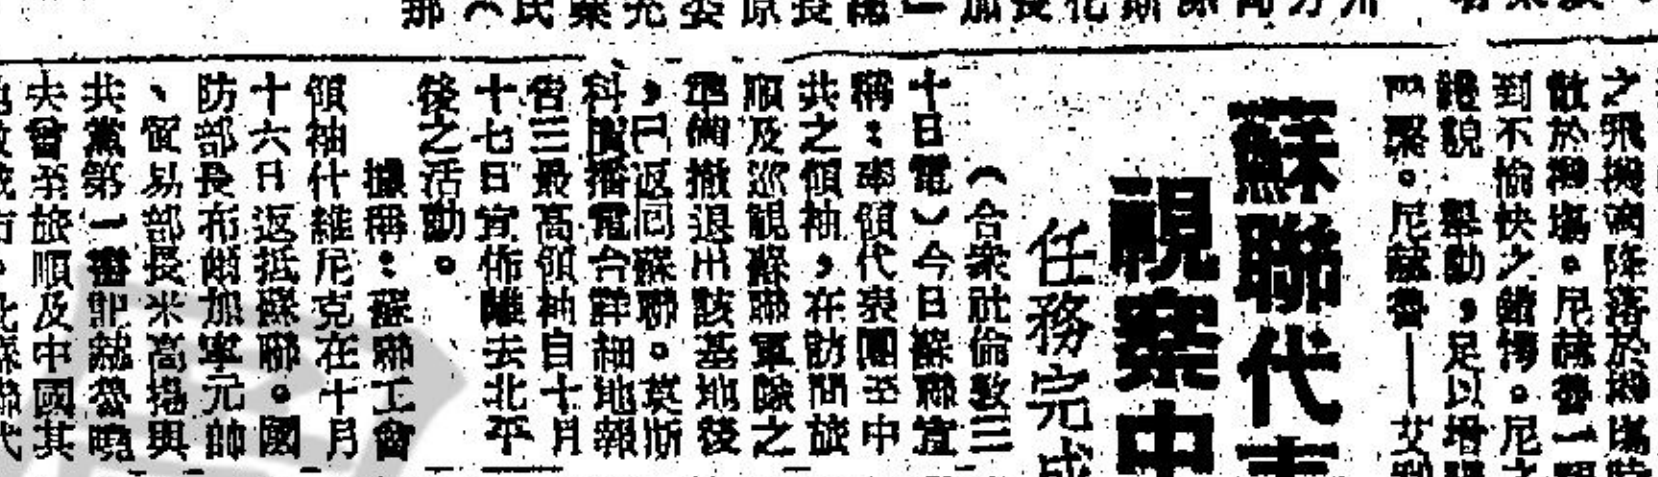 之飛機降落於機場時
散於機場。尼赫魯一
到不愉快之。尼
禮貌 舉動,足以增
。尼赫魯——艾
蘇聯代表
視察中
任務完成
(合衆社倫敦三
十日電)今日蘇聯宣
稱:率領代表團至中
共之領袖,在訪問旅
順及巡視蘇聯軍隊之
準備撤退出該基地後
,已返回蘇聯。莫斯
科廣播電台詳細地報
告三最高領袖自十月
十七日宣佈離去北平
後之活動。
據稱:蘇聯工會
領袖什維尼克在十月
十六日返抵蘇聯。國
防部長布爾加寧元帥
、貿易部長米高揚與
共黨第一書記赫魯曉
夫曾至旅順及中國其